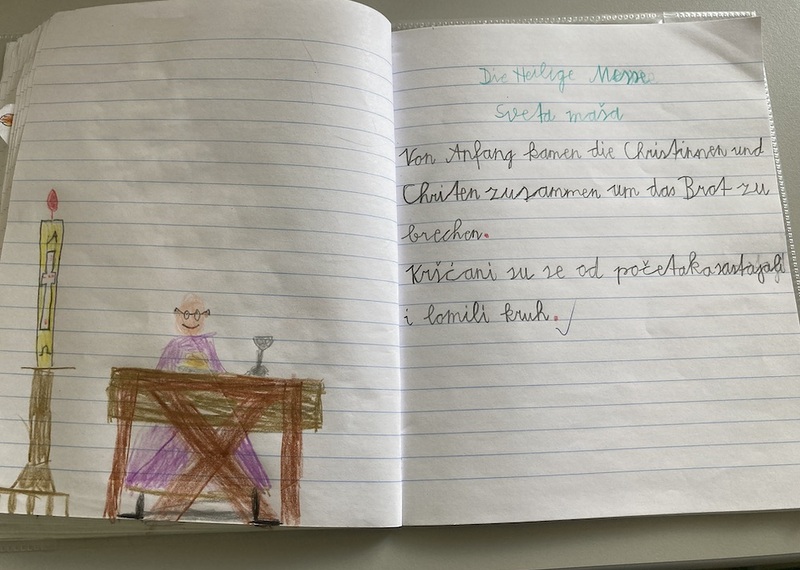 Die Heilige Messe
Sveta maša
Von Anfang kamen die Christinnen und
Christen zusammen um das Brot zu
brechen.
Kršćani su se od početaka sastajali
i lomili kruh.